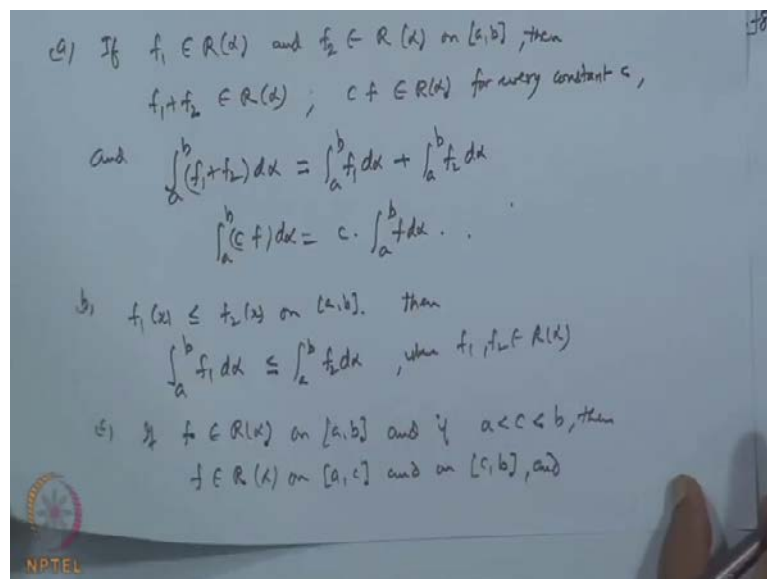 (a) If f₁ ∈ R(α) and f₂ ∈ R(α) on [a,b], then
f₁+f₂ ∈ R(α) ; c f ∈ R(α) for every constant c,
and ∫ₐᵇ (f₁+f₂) dα = ∫ₐᵇ f₁ dα + ∫ₐᵇ f₂ dα
∫ₐᵇ (c f) dα = c . ∫ₐᵇ f dα . .
b, f₁(x) ≤ f₂(x) on [a,b]. then
∫ₐᵇ f₁ dα ≤ ∫ₐᵇ f₂ dα , when f₁, f₂ ∈ R(α)
(c) If f ∈ R(α) on [a,b] and if a < c < b, then
f ∈ R(α) on [a,c] and on [c,b], and
NPTEL